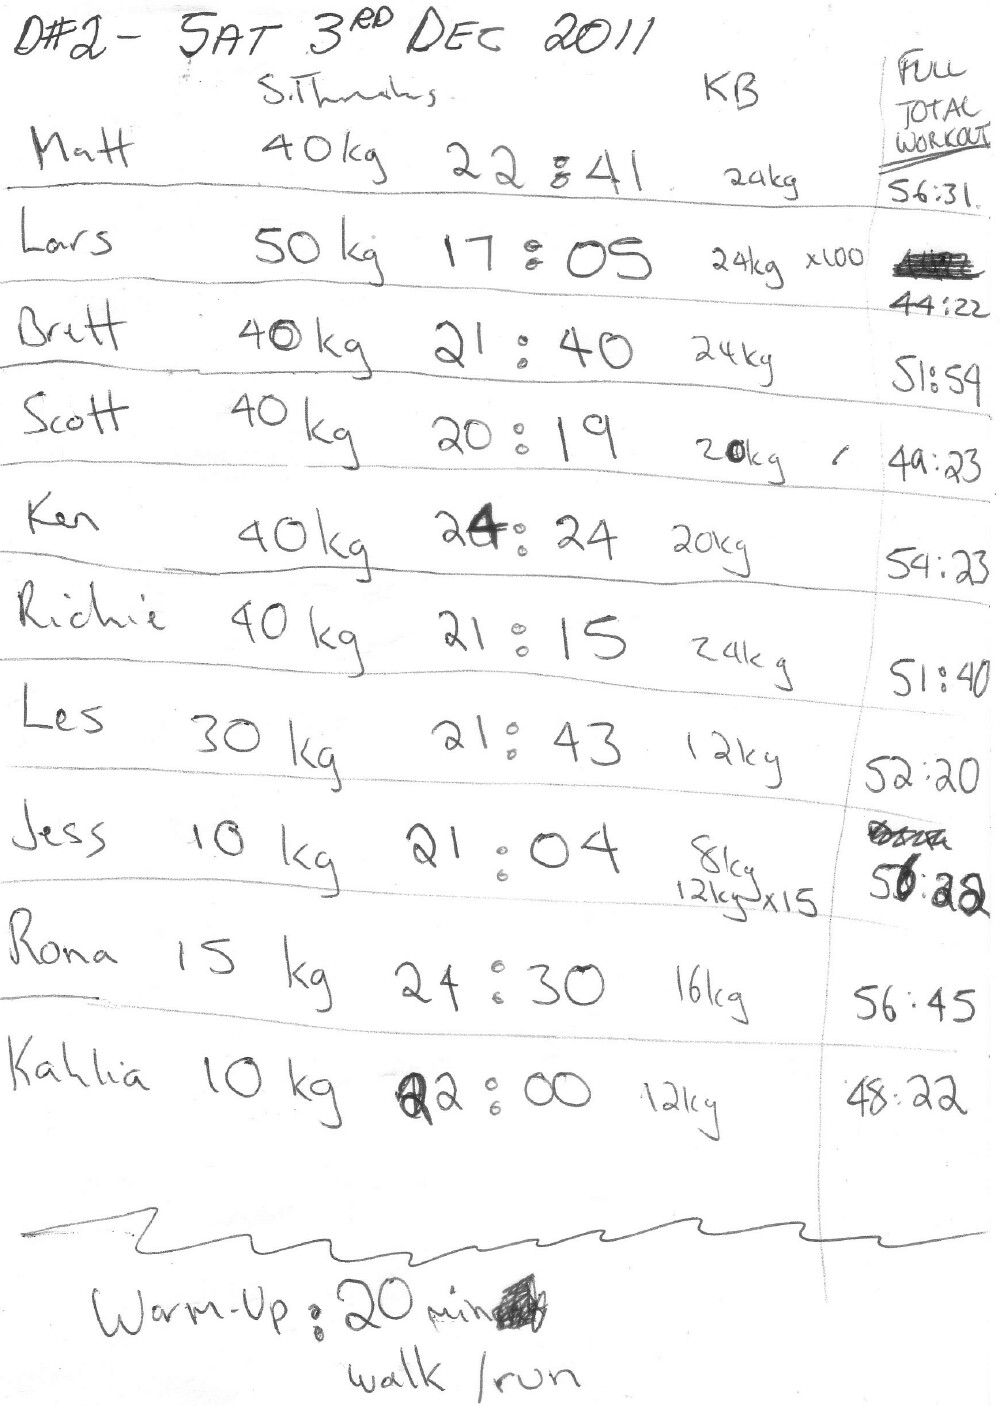 D#2 - SAT 3RD DEC 2011
S.Thrusters KB FULL TOTAL WORKOUT
Matt 40kg 22:41 24kg 56:31
Lars 50kg 17:05 24kg x100 44:22
Brett 40kg 21:40 24kg 51:54
Scott 40kg 20:19 20kg 49:23
Ken 40kg 24:24 20kg 54:23
Richie 40kg 21:15 24kg 51:40
Les 30kg 21:43 12kg 52:20
Jess 10kg 21:04 8kg 12kg x15 56:22
Rona 15kg 24:30 16kg 56:45
Kahlia 10kg 22:00 12kg 48:22
Warm-Up: 20 min
walk/run